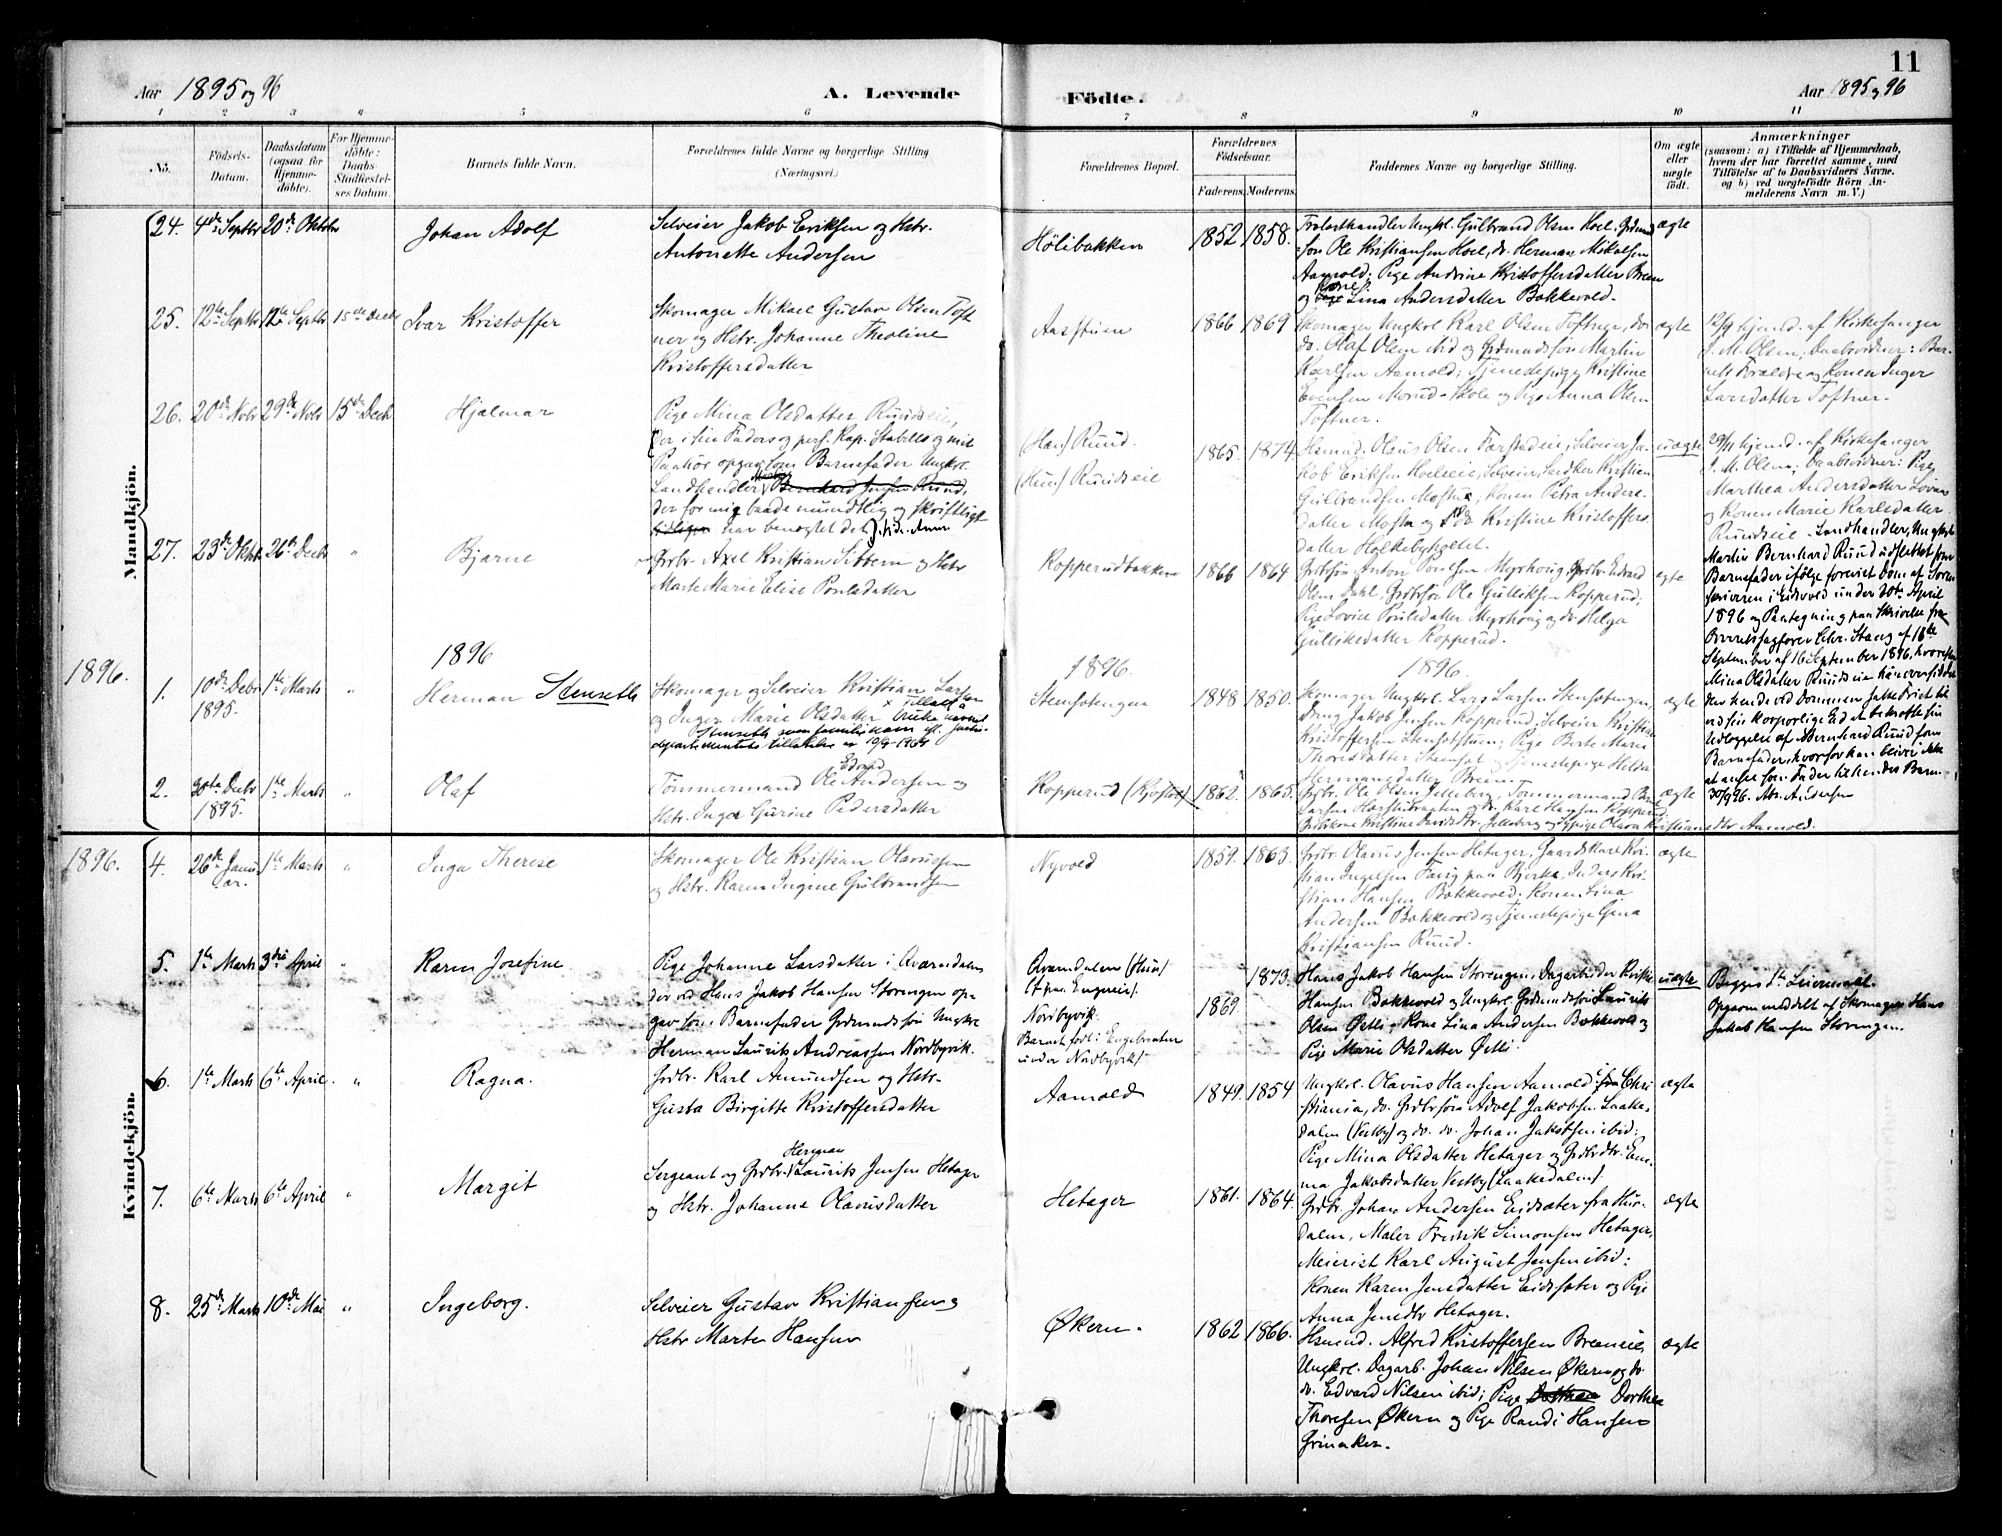 11
Aar 1895 og 96
A. Levende
Födte.
Aar 1895 og 96
1 2 3 4 5 6 7 8 9 10 11
No.
Födsels-Datum.
Daabsdatum (ogsaa for Hjemmedöbte).
For Hjemmedöbte: Daabs Stadfæstelses Datum.
Barnets fulde Navn.
Forældrenes fulde Navne og borgerlige Stilling (Næringsvei.)
Forældrenes Bopæl.
Forældrenes Födselsaar.
Faderens. Moderens.
Faddernes Navne og borgerlige Stilling.
Om ægte eller uægte födt.
Anmærkninger
(saasom: a) i Tilfælde af Hjemmedaab, hvem der har forrettet samme, med Tilföielse af to Daabsvidners Navne. og b) ved uægtefödte Börn Anmelderens Navn m. V.)
Mandkjön.
24. 4de Septbr 20de Oktbr
Johan Adolf
Selveier Jakob Eriksen og Hstr.
Antonette Andersen
Hölibakken
1852 1858.
Ungkl. Gulbrand Olsen Hoel, Grdmand
søn Ole Kristiansen Hoel, do. Herman Mikalsen
Aamold; Pige Andrine Kristoffersdatter Breen
og Kone Lina Andersdatter Bakkevold.
ægte
25. 12te Septbr 12te Septbr 15de Decbr
Ivar Kristoffer
Skomager Mikael Gustav Olsen Toft
ner og Hstr. Johanne Theoline
Kristoffersdatter
Aasstuen
1866 1869
Skomager Ungkl Karl Olsen Toftner, do.
do. Olaf Olsen ibid og Grdmandssøn Martin
Karlsen Aamold; Tjenestepige Kristine
Evensen Morud-Skole og Pige Anna Olsen
Toftner.
ægte
12/9 hjemd. af Kirkesanger
J. M. Olsen; Daabsvidner: Bar-
nets Forældre og Konen Inger
Larsdatter Toftner.
26. 20de Novbr 29de Novbr 15de Decbr
Hjalmar
Pige Mina Olsdatter Ruudseie,
der i sin Faders og pers. Kap. Stabells og mit
Paahör opgav som Barnefader Ungkl.
Landhandler Martin Bernhard Jensen Ruud,
der for mig baade mundtlig og skriftligt
har benegtet det.
(Han) Ruud.
(Hun) Ruudseie
1865. 1874
Husmd. Olaus Olsen Færstadeie, Selveier Ja-
kob Eriksen Hoelseie, Selveier Kristian
Gulbrandsen Mostue; Konen Petra Anders-
datter Mostue og do. Kristine Kristoffers-
datter Holkebyholtet.
uægte
29/11 hjemd. af Kirkesanger
J. M. Olsen; Daabsvidner: Pige
Marthea Andersdatter
og Konen Marie Karlsdatter
Ruudseie. Landhandler, Ungkarl
Martin Bernhard Ruud udslettet som
Barnefader ifølge forevist Dom af Soren-
skriveren i Eidsvold under 20de April
1896 og Paategning paa Skrivelse fra
Overretssagfører Chr. Stang af 18de
September af 16 September 1896, hvorefter
Mina Olsdatter Ruudseie har oversiddet
den hende ved Dommen satte Frist til
ved sin korporlige Ed at bekræfte sin
Udlæggelse af Bernhard Ruud som
Barnefader, hvorfor han bliver ikke
at anse som Fader til hendes Barn.
30/9 96. Abr. Andersen
27. 23de Oktbr 26de Decbr "
Bjarne
Grdbr. Axel Kristian Sibbern og Hstr
Marte Marie Elise Poulsdatter
Kopperudbakken
1866 1864
Grdbrsøn Anton Poulsen Myrhaug, Grdbr. Edvard
Olsen Dahl, Grdbrsøn Ole Gulliksen Kopperud;
Pige Lovise Poulsdatter Myrhaug og do. Helga
Gulliksdatter Kopperud.
ægte
1896. 1896 1896. 1896.
1. 10de Decbr 1895. 1ste Marts "
Herman Stenseth
Skomager og Selveier Kristian Larsen
og Inger Marie Olsdatter
x Tillagt
navnet
Stenseth som familienavn efl. Justis-
departementets tillatelse av 19/9-1904
Stensetengen
1848 1850.
Skomager Ungkl. Lars Larsen Stensetengen,
Dreng Jakob Jensen Kopperud, Selveier Kristian
Kristoffersen Stensetstuen; Pige Berte Marie
Thorsdatter Stenset og Tjenestepige Helda
Hermansdatter Breen.
ægte
2. 30te Decbr 1895. 1ste Marts "
Olaf
Tømmermand Ole Edvard Andersen og
Hstr. Inger Gurine Pedersdatter
Kopperud
1862. 1865.
Grdbr. Ole Olsen Jelleberg, Tømmermand
Larsen og do. Karl Hansen Kopperud,
Kristine og Pige Olava Kristiansdtr. Aamold.
ægte
Kvindekjön.
1896. 4. 26de Janu-
ar. 1ste Marts "
Inga Therese
Skomager Ole Kristian Olaussen
og Hstr. Karen Ingine Gulbrandsen
Nyvold
1859. 1863.
Grdbr. Olaus Jensen Hetager, Gaardskarl Kri-
stian Ingelsen paa Bjerke, Kri-
stian Hansen Bakkevold; Konen Lina
Andersen Bakkevold og Tjenestepige Gina
Kristiansen Ruud.
ægte
5. 1ste Marts 3die April "
Karen Josefine
Pige Johanne Larsdatter i Qværndalen
der ved Hans Jakob Hansen Storengen op-
gav som Barnefader Grdmandssøn Ungkl
Herman Laurits Andreassen Nordbyvik.
Qværndalen (Hun)
Nordbyvik.
Barnet født i Engebraaten
under Nordbyvik).
1869. 1873.
Hans Jakob Hansen Storengen, Dagarbeider
Hansen Bakkevold og Ungkl. Grdmandssøn Laurits
Olsen Østli; Kone Lina Andersen Bakkevold og
Pige Marie Olsdatter Østli.
uægte
Begges 1ste Leiermaal.
Opgave meddelt af Skomager Hans
Jakob Hansen Storengen.
6. 1ste Marts 6te April "
Ragna.
Grdbr. Karl Amundsen og Hstr.
Gusta Birgitte Kristoffersdatter
Aamold
1849. 1854
Ungkl. Olavus Hansen Aamold fra Chri-
stiania, do. Grdbrsøn Adolf Jakobsen Laake-
dalen (Vestby) og do. do. Johan Jakobsen ibid;
Pige Mina Olsdatter Hetager og Grdbrdtr. Em-
ma Jakobsdatter Vestby (Laakedalen).
ægte
7. 6te Marts 6te April "
Margit
Sergeant og Grdbr. Herman Laurits Jensen Hetager
og Hstr. Johanne Olavusdatter
Hetager
1861. 1864.
Grdbr. Johan Andersen Eidsæter fra Hur-
dalen, Maler Fredrik Simonsen Hetager,
Meierist Karl August Jensen ibid;
Konen Karen Jensdatter Eidsæter og Pige
Anna Jensdtr Hetager.
ægte
8. 25de Marts 10de Mai "
Ingeborg.
Selveier Gustav Kristiansen og
Hstr Marte Hansen
Økern.
1862 1866.
Husmd. Alfred Kristoffersen Breeneie,
Ungkl. Dagarb. Johan Nilsen Økern og do
do. Edvard Nilsen ibid; Pige Dorthea
Thoresen Økern og Pige Randi Hansen
Grinaker.
ægte